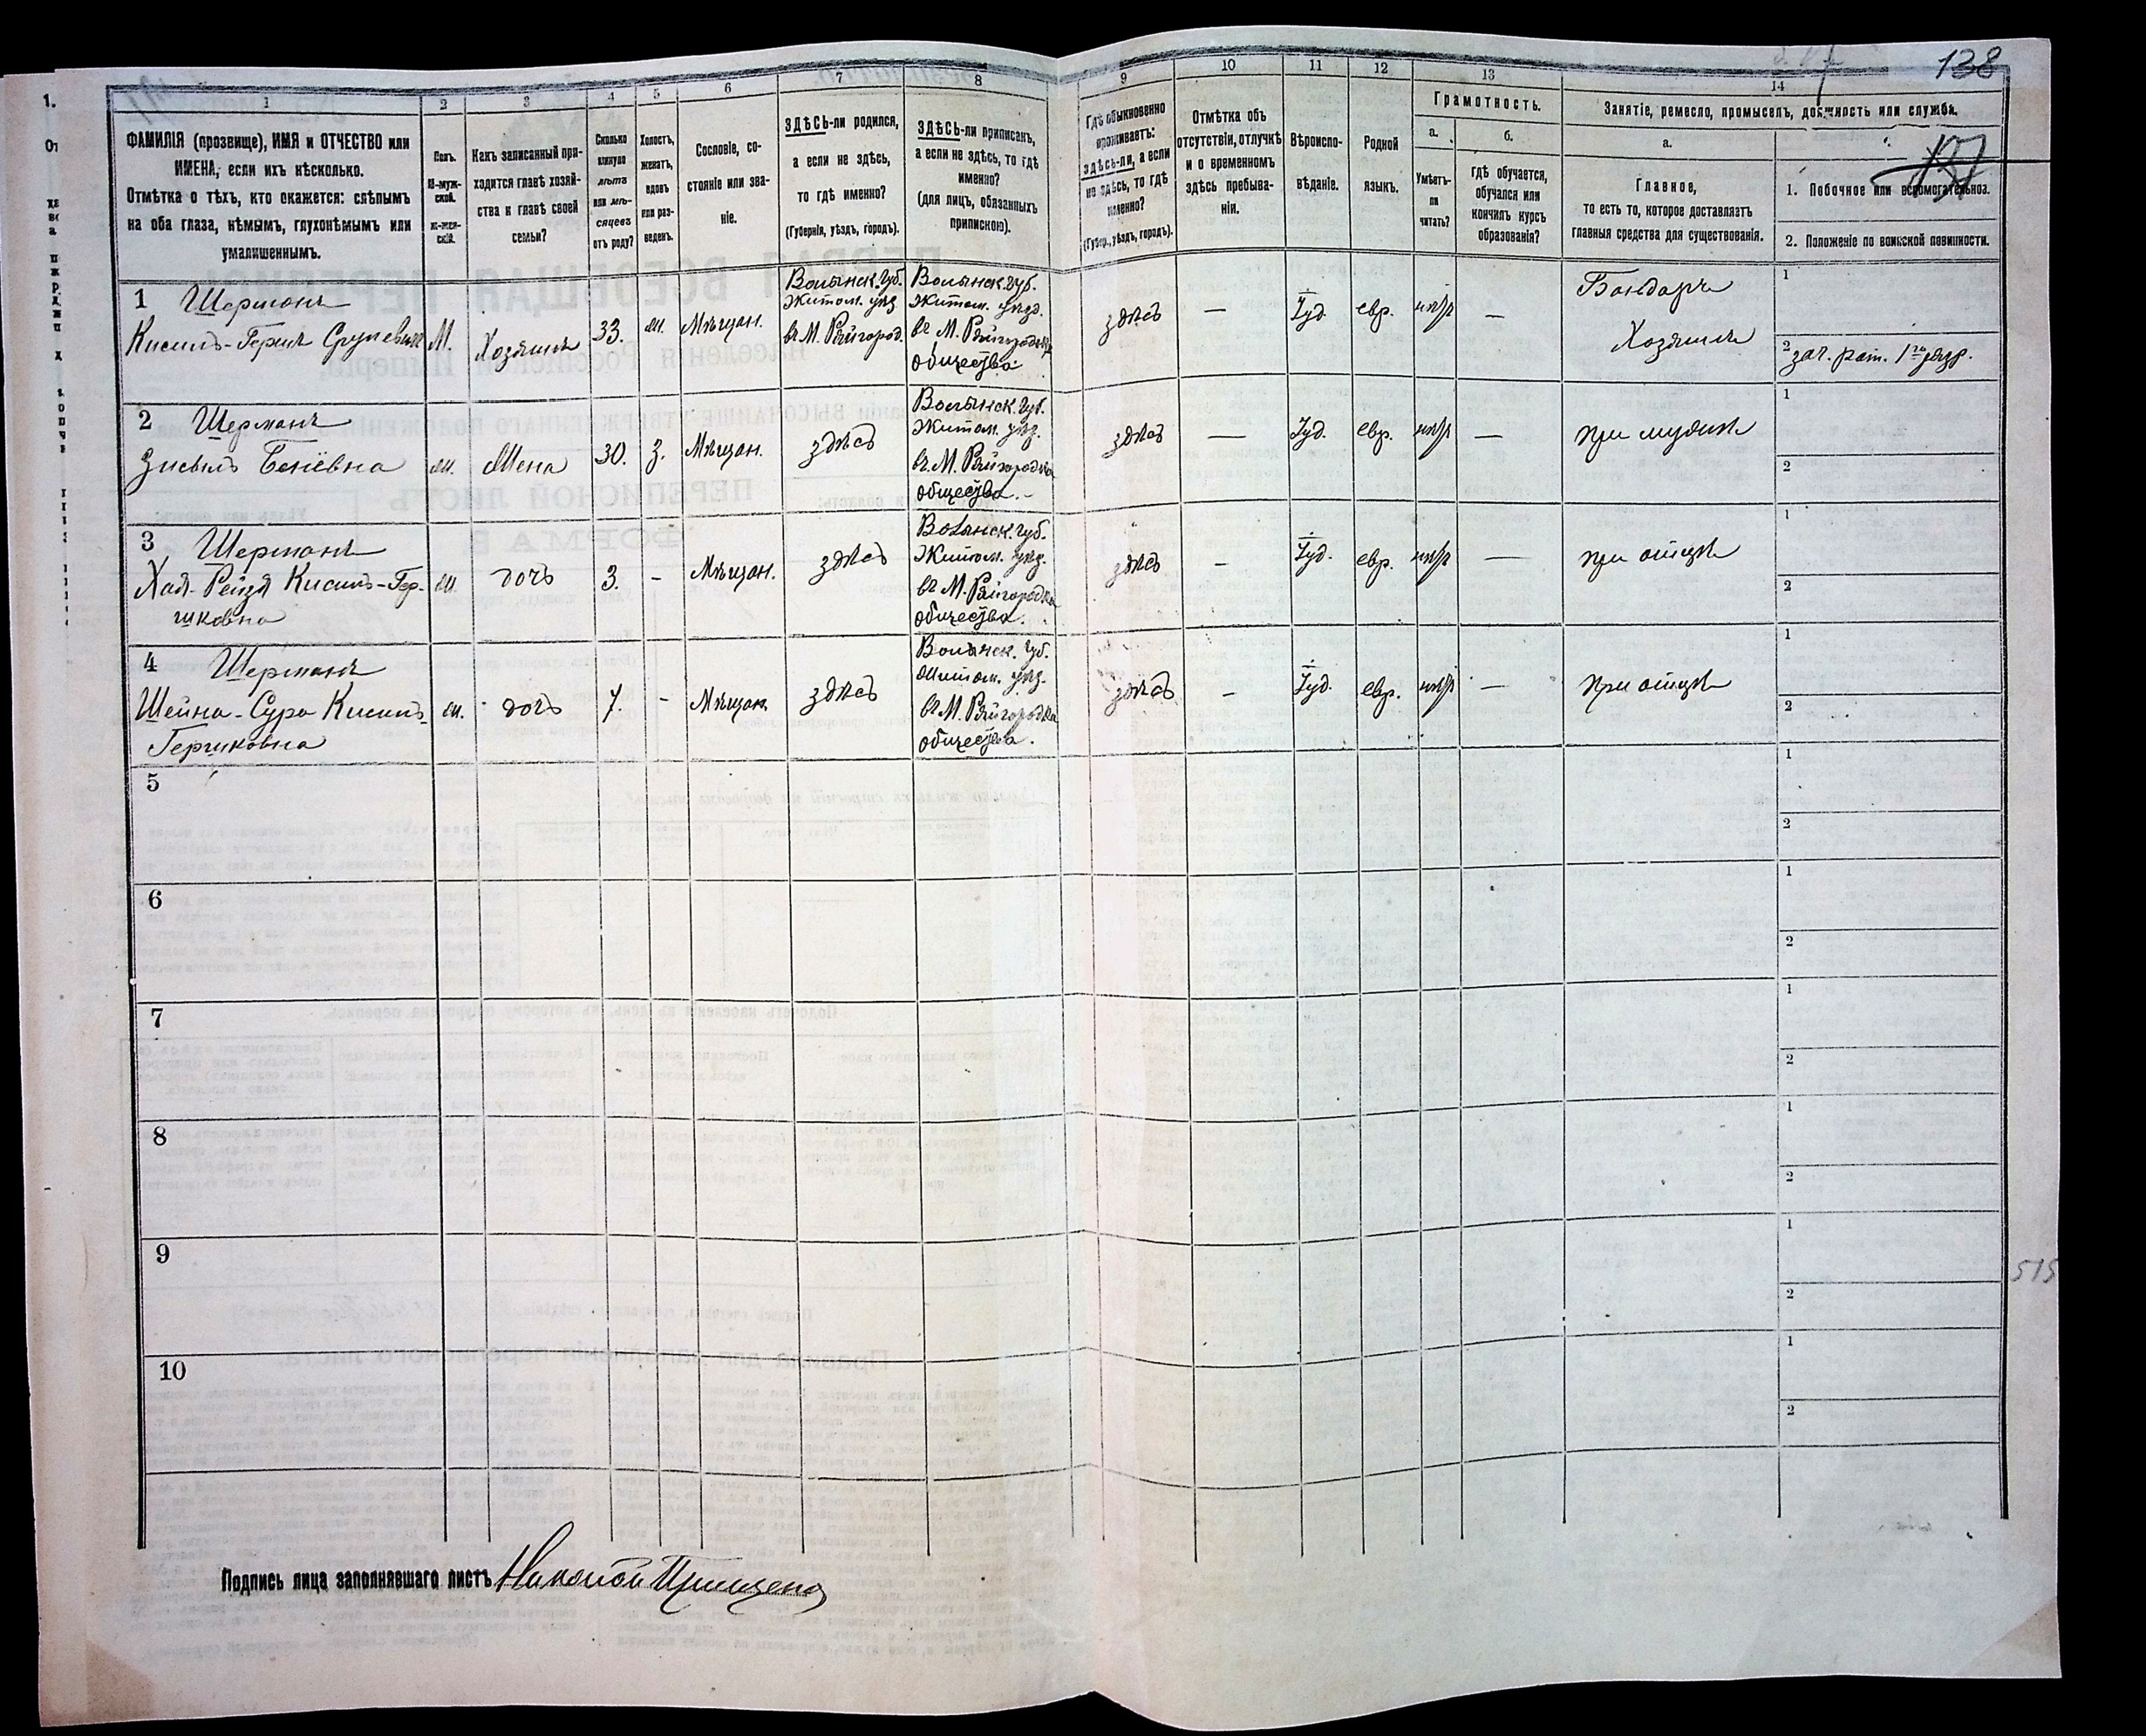 138
1 2 3 4 5 6 7 8 9 10 11 12 13 14
ФАМИЛІЯ (прозвище), ИМЯ и ОТЧЕСТВО или
ИМЕНА, если ихъ нѣсколько.
Отмѣтка о тѣхъ, кто окажется: слѣпымъ
на оба глаза, нѣмымъ, глухонѣмымъ или
умалишеннымъ.
Полъ.
М-муж-
ской.
Ж-жен-
скій.
Какъ записанный при-
ходится главѣ хозяй-
ства и главѣ своей
семьи?
Сколько
минуло
лѣтъ
или мѣ-
сяцевъ
отъ роду?
Холостъ,
женатъ,
вдовъ
или раз-
веденъ.
Сословіе, со-
стояніе или зва-
ніе.
ЗДѢСЬ-ли родился,
а если не здѣсь,
то гдѣ именно?
(Губернія, уѣздъ, городъ).
ЗДѢСЬ-ли приписанъ,
а если не здѣсь, то гдѣ
именно?
(для лицъ, обязанныхъ
припискою).
Гдѣ обыкновенно
проживаетъ:
здѣсь-ли, а если
не здѣсь, то гдѣ
именно?
(Губер., уѣздъ, городъ).
Отмѣтка объ
отсутствіи, отлучкѣ
и о временномъ
здѣсь пребыва-
ніи.
Вѣроиспо-
вѣданіе.
Родной
языкъ.
Грамотность.
а.
Умѣетъ-
ли
читать?
б.
гдѣ обучается,
обучался или
кончилъ курсъ
образованія?
Занятіе, ремесло, промыселъ, должность или служба.
а.
Главное,
то есть то, которое доставляетъ
главныя средства для существованія.
137
1. Побочное или вспомогательное.
2. Положеніе по воинской повинности.
1 Шерманъ
Кисиль-Герш
М.
Хозяинъ
33.
ж.
Мѣщан.
Волынск. Губ.
Житом. уѣз
въ М. Райгород.
Волынск. Губ.
Житом. уѣзд.
въ М. Райгородка
общества
здѣсь
—
Іуд.
евр.
—
Бондарь
Хозяинъ
1
2 зач. рат. 1го разр.
2 Шерманъ
ж.
Жена
30.
З.
Мѣщан.
здѣсь
Волынск. Губ.
Житом. уѣз.
въ М. Райгородка
общества.
здѣсь
—
Іуд.
евр.
—
при мужѣ
1
2
3 Шерманъ
Хая-Рейзя Кисиль-Гер-
шковна
ж.
дочь
3.
-
Мѣщан.
здѣсь
Волынск. Губ.
Житом. уѣз.
въ М. Райгородка
общества.
здѣсь
-
Іуд.
евр.
—
при отцѣ
1
2
4 Шерманъ
Шейна-Сура Кисиль-
Гершковна
ж.
дочь
7.
-
Мѣщан.
здѣсь
Волынск. Губ.
Житом. уѣз.
въ М. Райгородка
общества.
здѣсь
-
Іуд.
евр.
—
при отцѣ
1
2
5
1
2
6
1
2
7
1
2
8
1
2
9
1
2
515
10
1
2
Подпись лица заполнявшаго листъ